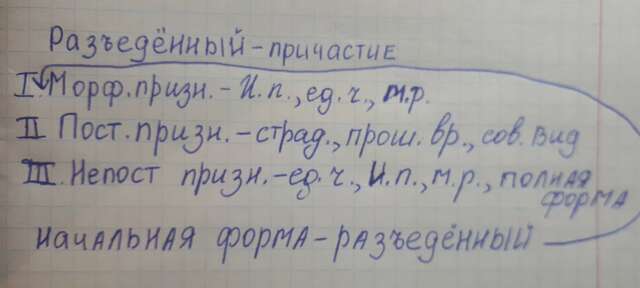 Разъедённый - причастие
I. Морф. призн. - И.п., ед.ч., м.р.
II Пост. призн. - страд., прош. вр., сов. вид
III. Непост призн. - ед.ч., И.п., м.р., полная
форма
начальная форма - разъедённый